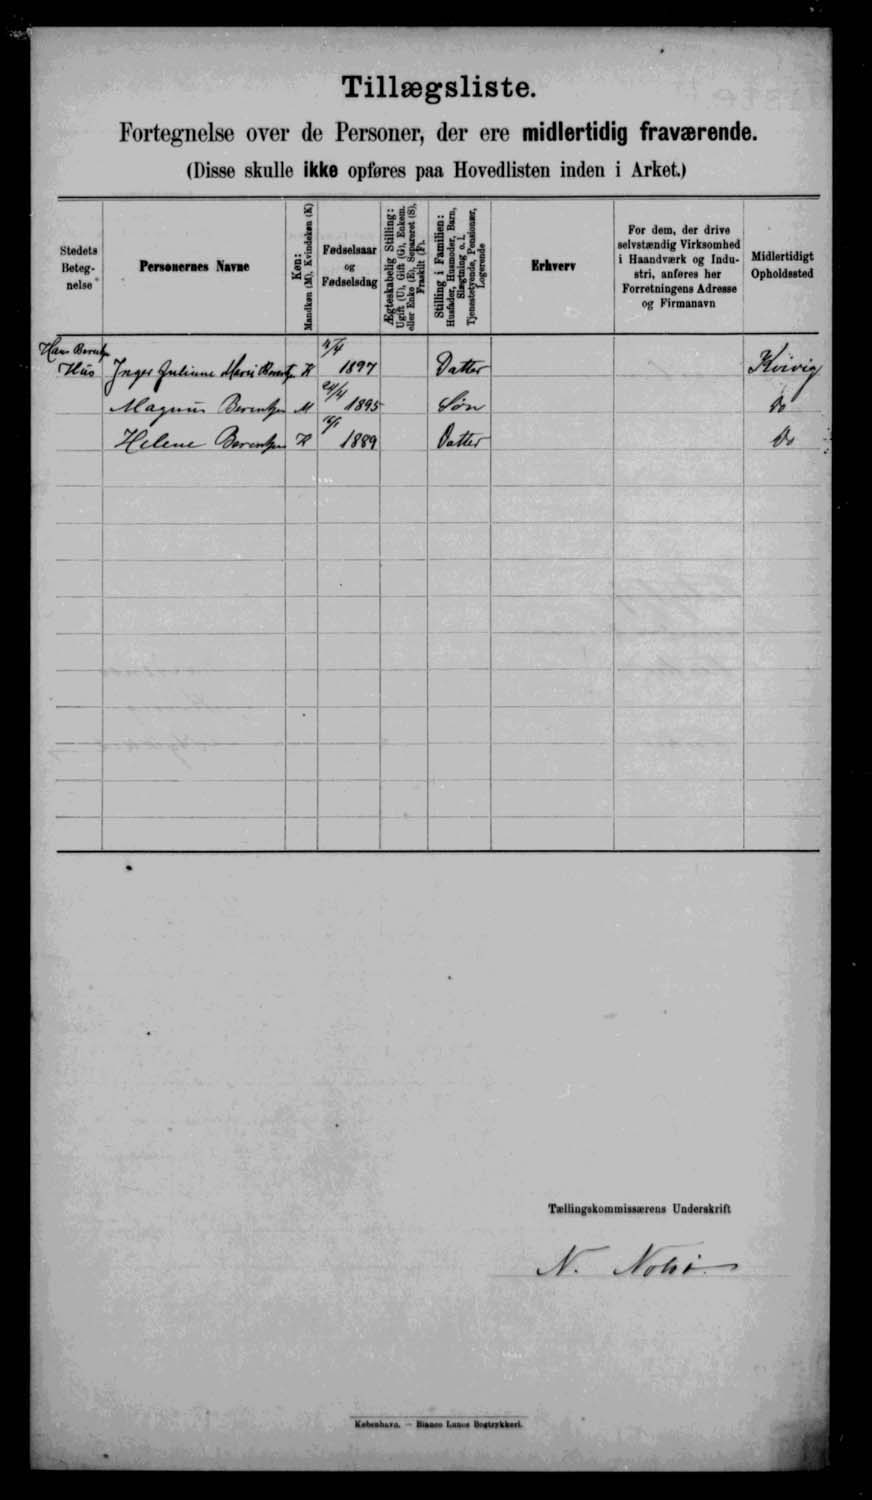 Tillægsliste.
Fortegnelse over de Personer, der ere midlertidig fraværende.
(Disse skulle ikke opføres paa Hovedlisten inden i Arket.)
Stedets Beteg-nelse
Personernes Navne
Køn: Mandkøn (M), Kvindekøn (K)
Fødselsaar og Fødselsdag
Ægteskabelig Stilling: Ugift (U), Gift (G), Enkem. eller Enke (E), Separeret (S), Fraskilt (F).
Stilling i Familien: Husfader, Husmoder, Barn, Slægtning o. l. Tjenestetyende, Pensionær, Logerende
Erhverv
For dem, der drive selvstændig Virksomhed i Haandværk og Indu-stri, anføres her Forretningens Adresse og Firmanavn
Midlertidigt Opholdssted
Hans Berentsen
Hus Inger Juliane Marie Berentsen K 1897 Datter Kvivig
Magnus Berentsen M 24/4 1895 Søn Do
Helene Berentsen K 1889 Datter Do
Tællingskommissærens Underskrift
N. Nolsø
København. — Bianco Lunos Bogtrykkeri.